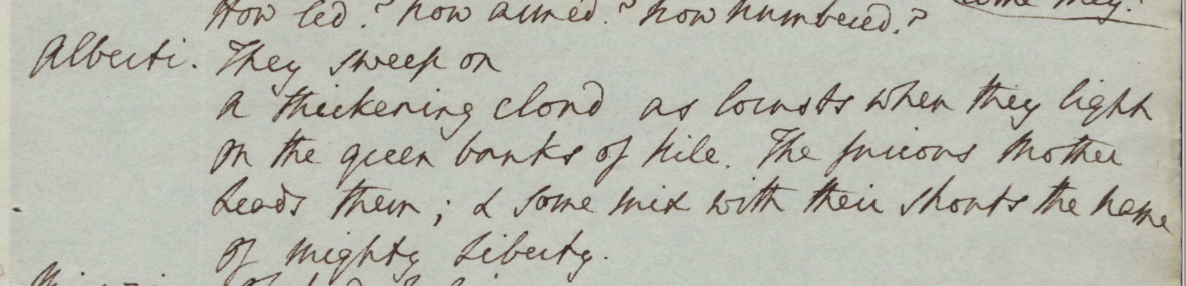 How led? how armed? how numbered? come they?
Alberti. They sweep on
A thickening cloud as locusts when they light
On the green banks of Nile. The furious Mother
Leads them; & some mix with their shouts the name
Of mighty Liberty.